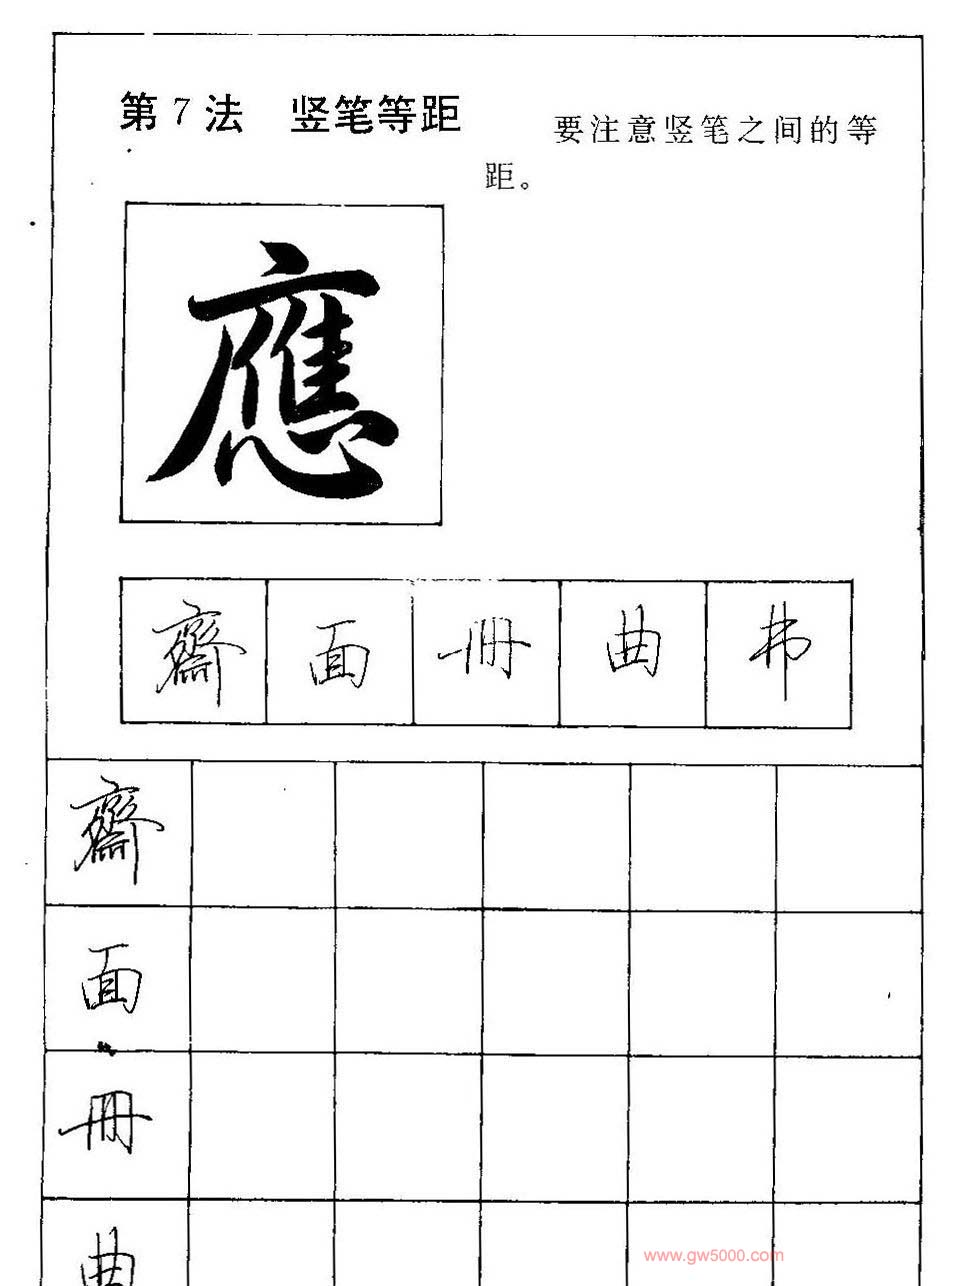 第7法 竖笔等距
要注意竖笔之间的等
距。
應
齋 面 冊 曲 弗
齋
面
冊
曲
www.gw5000.com